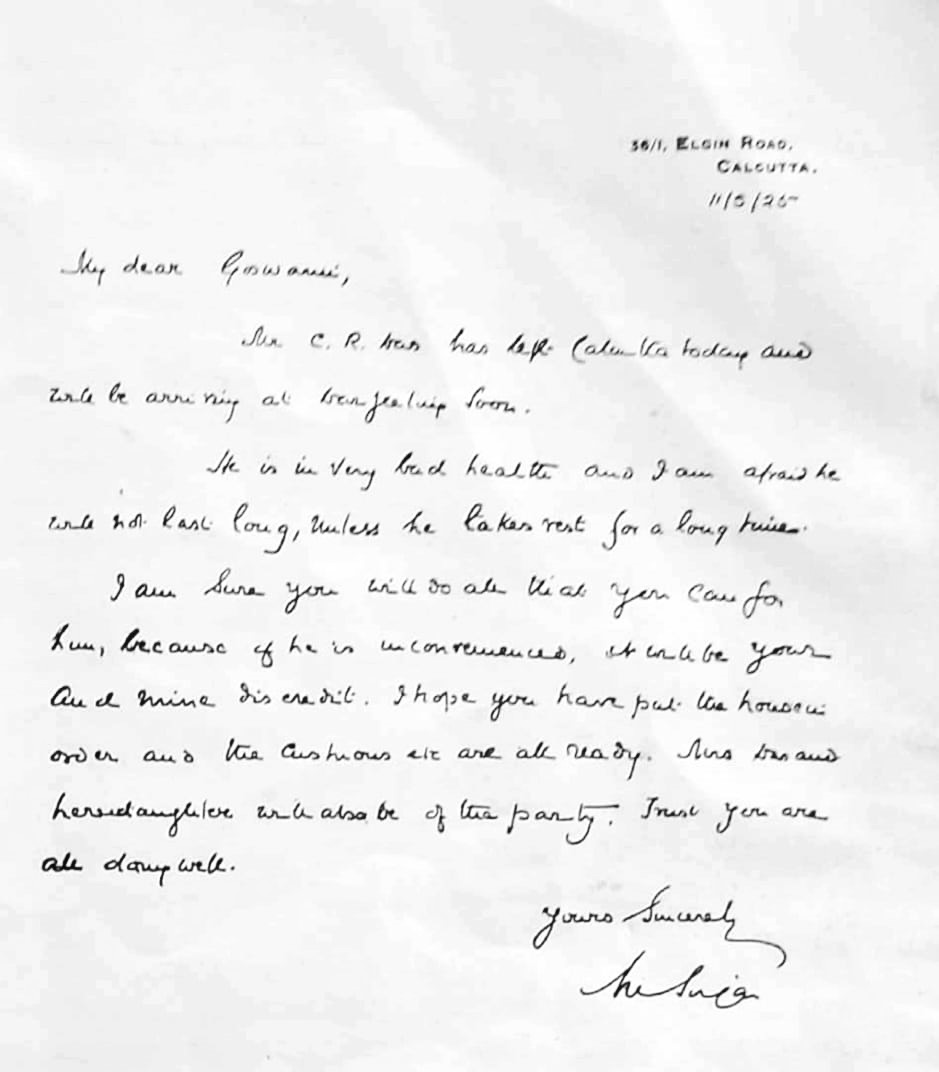 36/1, ELGIN ROAD,
CALCUTTA.
11/5/25
My dear Goswami,
Mr C. R. Das has left Calcutta today and
will be arriving at Darjeeling soon.
He is in very bad health and I am afraid he
will not last long, unless he takes rest for a long time.
I am sure you will do all that you can for
him, because if he is inconvenienced, it will be your
and mine discredit. I hope you have put the house in
order and the cushions etc are all ready. Mrs Das and
her daughter will also be of the party. Trust you are
all doing well.
Yours Sincerely